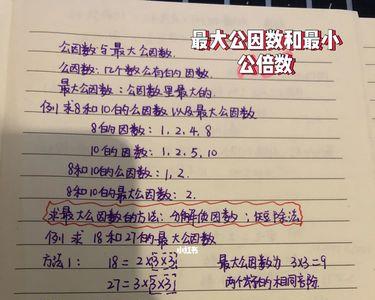 最大公因数和最小
公倍数
公因数与最大公因数.
公因数:几个数公有的因数.
最大公因数:公因数里最大的.
例1 求8和10的公因数以及最大公因数
8的因数:1、2、4、8
10的因数:1、2、5、10
8和10的公因数:1、2.
8和10的最大公因数:2.
求最大公因数的方法:分解质因数;短除法
例1 求18和27的最大公因数
小红书
方法1: 18=2×3×3 最大公因数为 3×3=9
27=3×3×3 两个数的相同